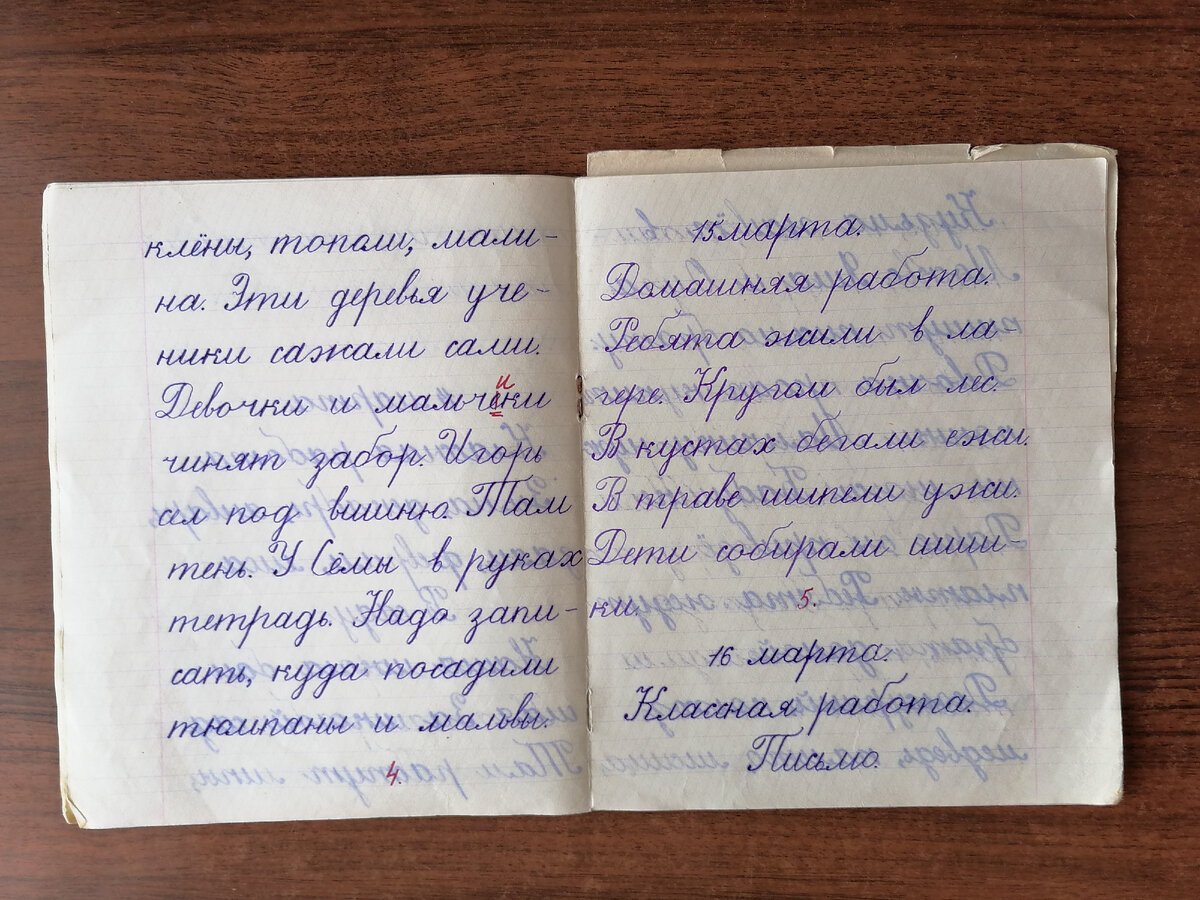 клёны, тополи, мали-
на. Эти деревья уче-
ники сажали сами.
и
Девочки и мальчеки
чинят забор. Игорь
сел под вишню. Там
тень. У Сёмы в руках
тетрадь. Надо запи-
сать, куда посадили
тюльпаны и мальвы.
4.
15 марта.
Домашняя работа.
Ребята жили в ла-
гере. Кругом был лес.
В кустах бегали ежи.
В траве шипели ужи.
Дети собирали шиш-
ки. 5.
16 марта.
Классная работа.
Письмо.